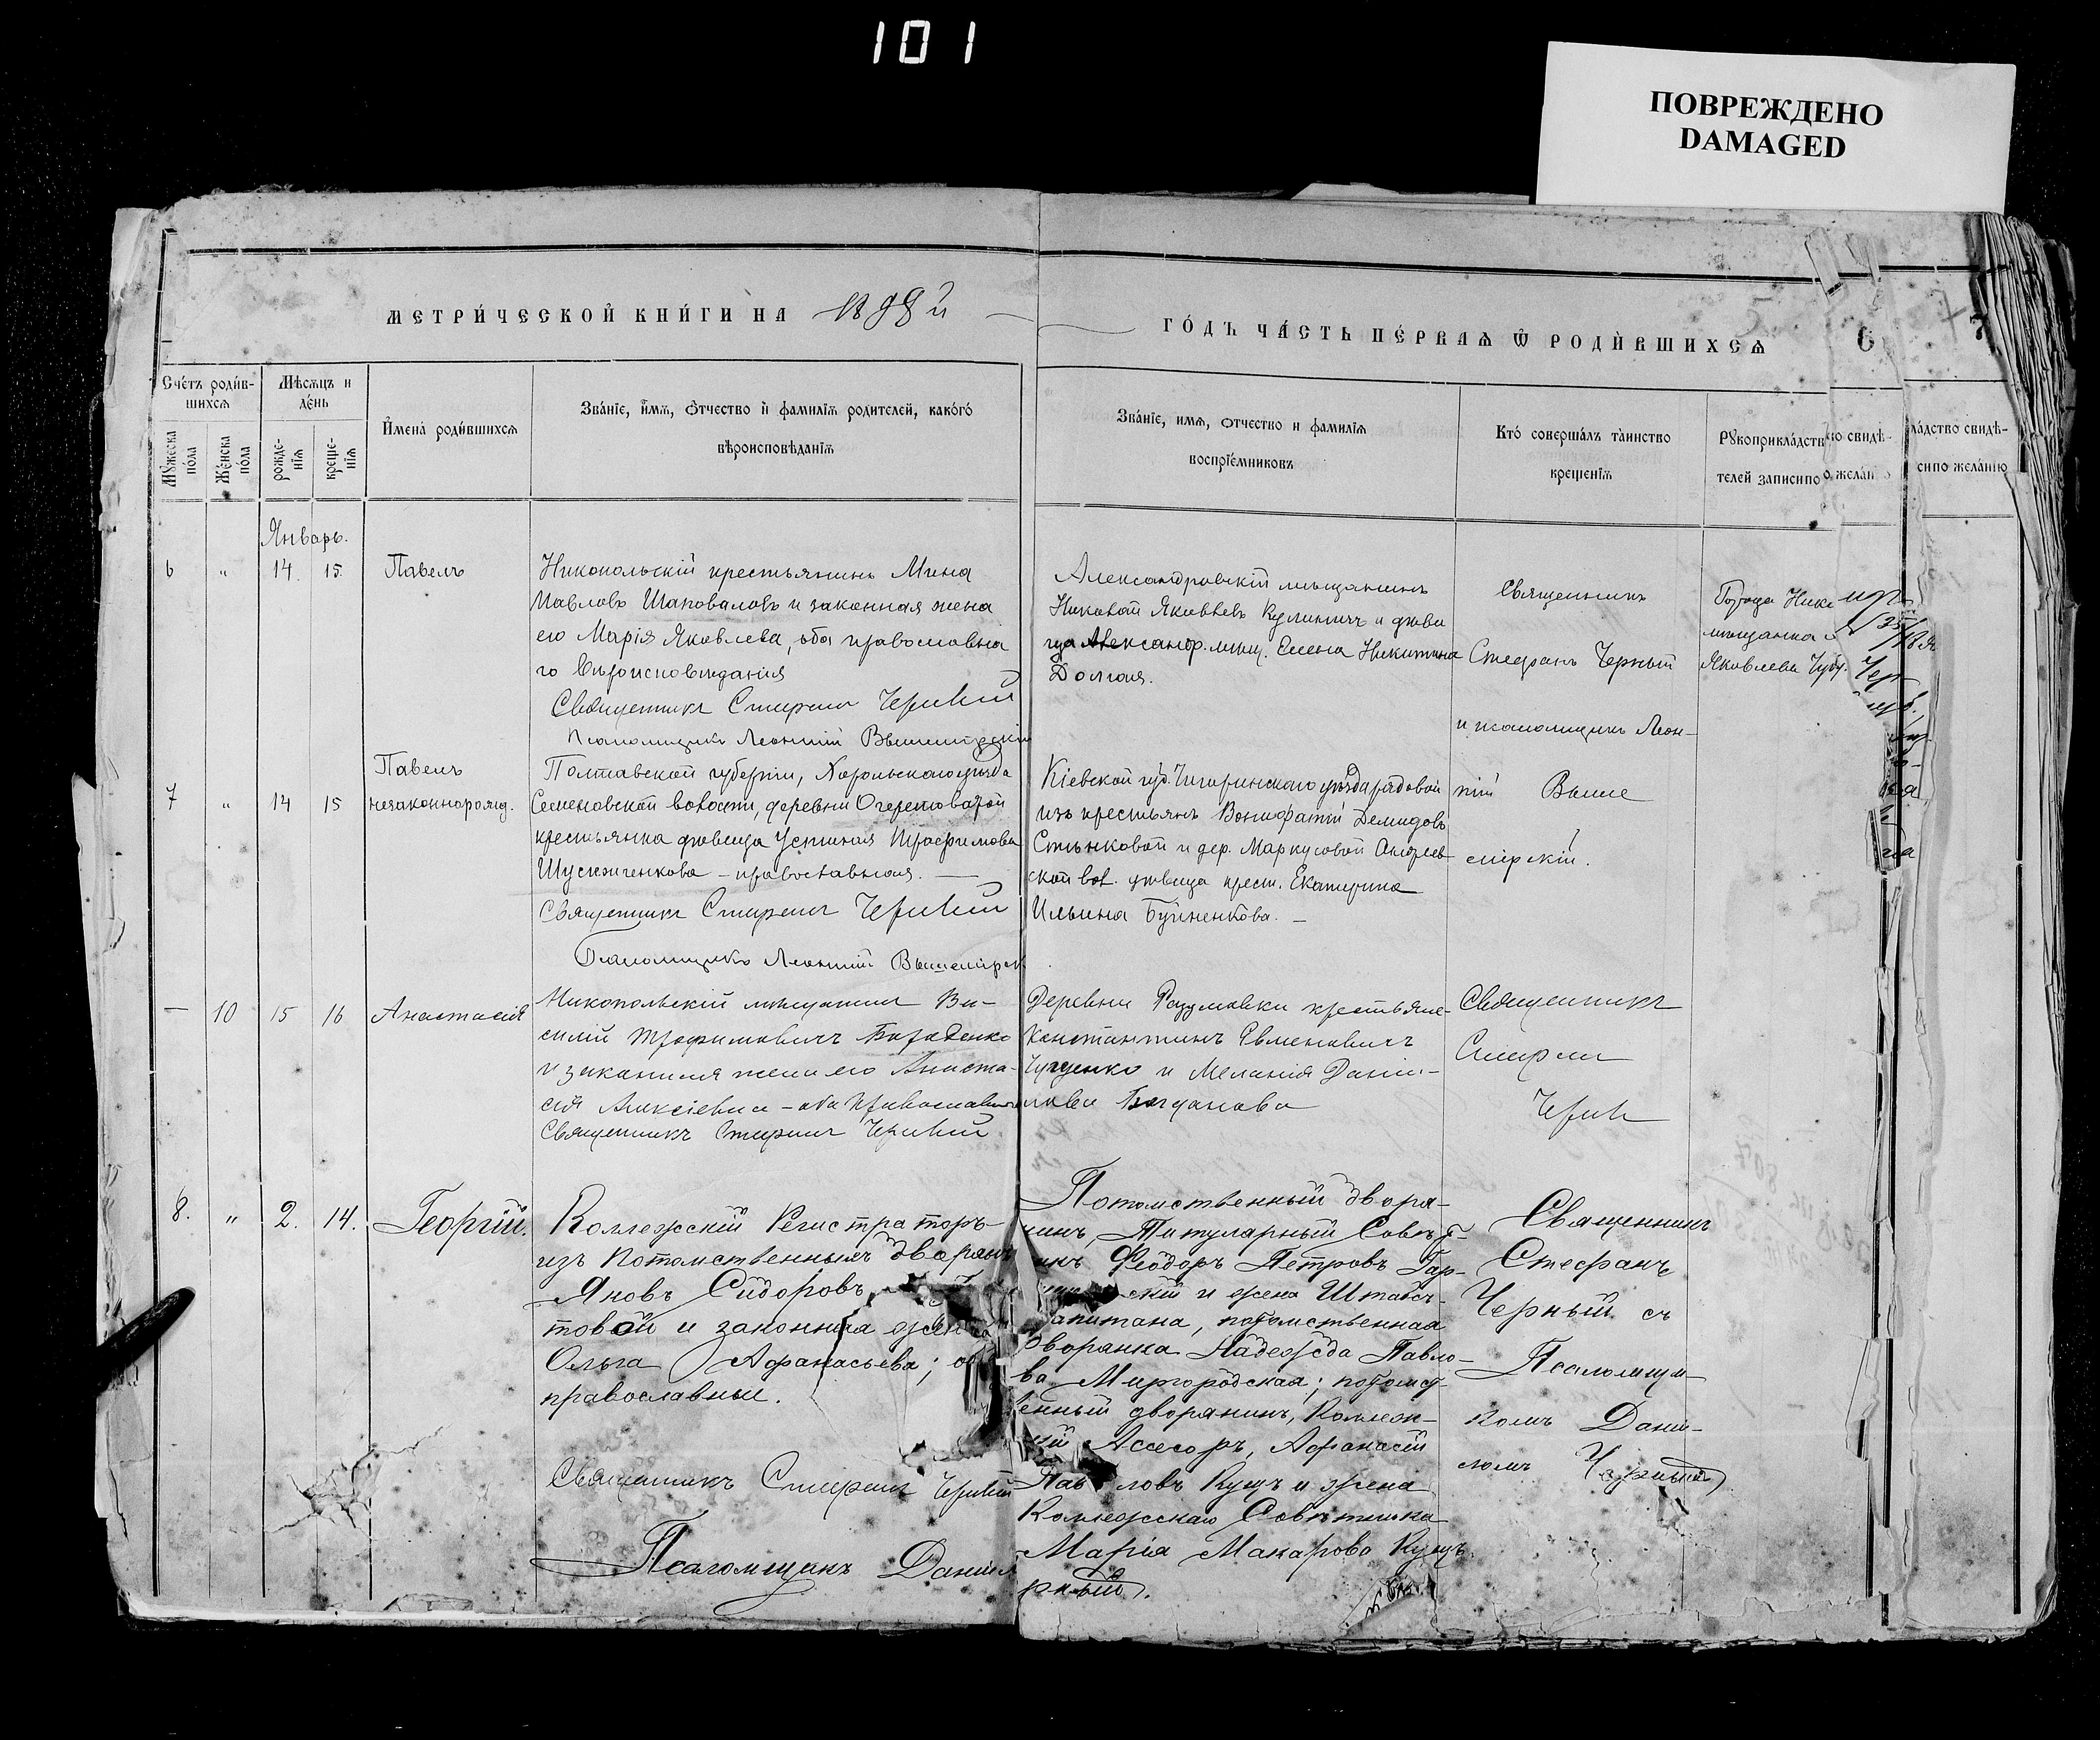 101
ПОВРЕЖДЕНО
DAMAGED
МЕТРИ́ЧЕСКОЙ КНИ́ГИ НА 1898 й
ГО́ДЪ ЧА́СТЬ ПЕ́РВАѦ Ѿ РОДИ́ВШИХСѦ
Сче́тъ роди́в-
шихсѧ
Мѣсѧцъ и
де́нь
Мꙋжеска
по́ла
Же́нска
по́ла
рожде-
нїѧ
креще-
нїѧ
Имена́ роди́вшихсѧ
Зва́нїе, и́мѧ, о́тчество и фамилїѧ родителей, како́го
вѣроисповѣданїѧ
Зва́нїе, имѧ, отчество и фамилїѧ
воспрїе́мниковъ
Кто́ соверша́лъ та́инство
крещенїѧ
Рꙋкоприкла́дств
телей записи по
о свидѣ-
жела́н
ла́дство свидѣ-
си по жела́нїю
Январь.
6 " 14. 15. Павелъ
Никопольскій крестьянинъ Мина
Павловъ Шаповаловъ и законная жена
его Марія Яковлева, оба православна
го вѣроисповѣданія
Священникъ Стефанъ Черный
Псаломщикъ Леонтій
Александровскій мѣщанинъ
Яковлевъ Кулиничъ и дѣви
ца Александр. мѣщ. Елена Никитина
Долгая.
Священникъ
Стефанъ Черный
и псаломщикъ Леон-
тій Выше
мірскій.
Города Нико
мѣщанка
Яковлева
7 " 14 15 Павелъ
незаконнорожд.
Полтавской губерніи, Хорольскаго уѣзда
Семеновской волости, деревни Очеретоватой
крестьянка дѣвица Устинія Трофимова
– православная. —
Священникъ Стефанъ Черный
Псаломщикъ Леонтій Вышемірск
Кіевской губ. Чигиринскаго уѣзда рядовой
изъ крестьянъ Вонифатій Демидовъ
Стѣнковой и дер. Маркусовой Андреев-
ской вол. дѣвица крест. Екатерина
Ильина Буйненкова. –
— 10 15 16 Анастасія
Никопольскій мѣщанинъ Ва-
силій Трофимовичъ Бараденко
и законная жена его Анаста-
сія Алексіевна – оба православные
Священникъ Стефанъ Черный
Деревни Разумовки крестьяне
Константинъ Евменовичъ
и Меланія Даніи-
лова Богданова
Священникъ
Стефан
Черн
8. " 2. 14. Георгій.
Коллежскій Регистраторъ
изъ потомственныхъ дворянъ
Яковъ Сидоровъ
товой и законная жена
Ольга Афанасьева; о
православные.
Священникъ Стефанъ Черный
Псаломщикъ Даніил
Потомственный дворя-
нинъ, Титулярный Совѣт-
никъ Ѳеодоръ Петровъ Гар-
скій и жена Штабсъ-
капитана, потомственная
дворянка Надежда Павло-
ва Миргородская; потомст-
енный дворянинъ, Коллеж-
кій Ассесоръ, Афанасій
Павловъ Кущъ и жена
Коллежскаго Совѣтника
Марія Макарова Кущъ.
рный.
Священникъ
Стефанъ
Черный съ
Псаломщи-
комъ Дани-
ломъ Чернымъ